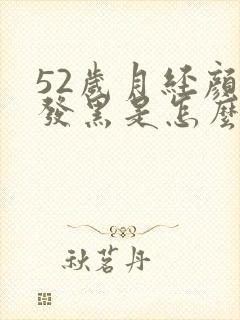 52歲月經顏
發黑是怎麼
秋茗丹